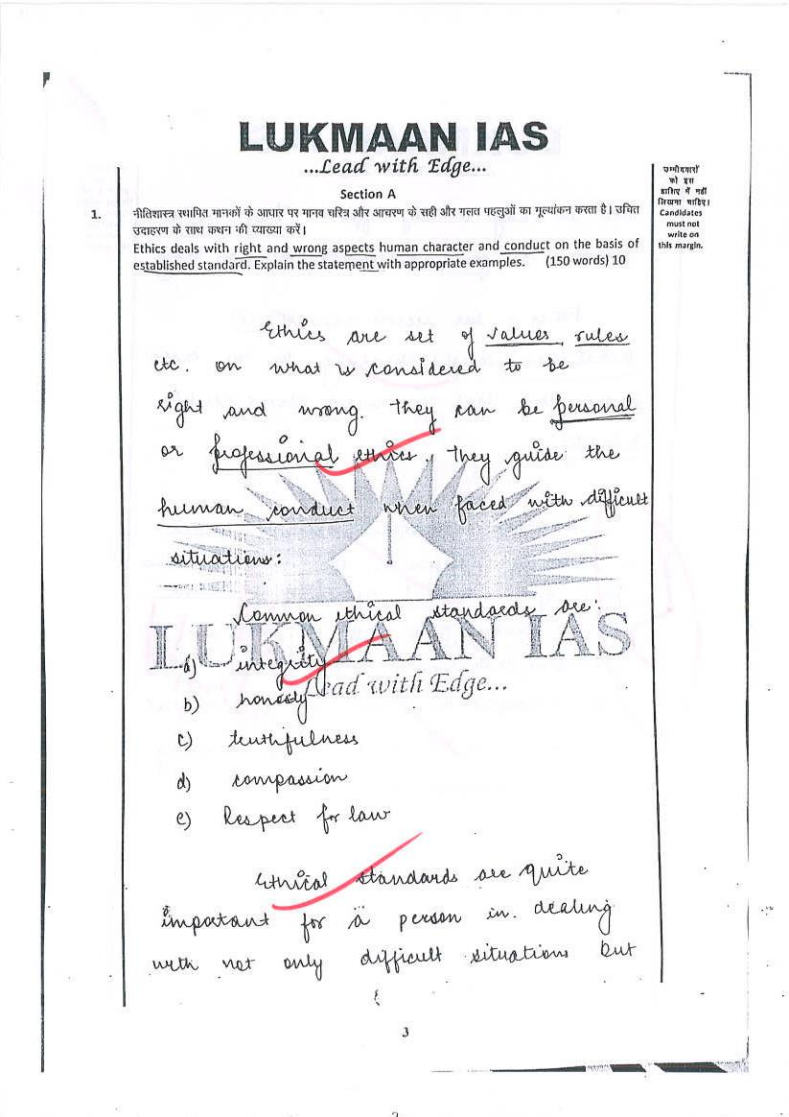 LUKMAAN IAS
...Lead with Edge...
Section A
उम्मीदवारों
को इस
हाशिए में नहीं
लिखना चाहिए।
Candidates
must not
write on
this margin.
1. नीतिशास्त्र स्थापित मानकों के आधार पर मानव चरित्र और आचरण के सही और गलत पहलुओं का मूल्यांकन करता है। उचित
उदाहरण के साथ कथन की व्याख्या करें।
Ethics deals with right and wrong aspects human character and conduct on the basis of
established standard. Explain the statement with appropriate examples. (150 words) 10
Ethics are set of values, rules
etc. on what is considered to be
right and wrong. They can be personal
or professional ethics. They guide the
human conduct when faced with difficult
situations:
Common ethical standards are:
LUKMAAN IAS
a) integrity
Lead with Edge...
b) honesty
c) truthfulness
d) compassion
e) Respect for law
Ethical standards are quite
important for a person in dealing
with not only difficult situations but
3